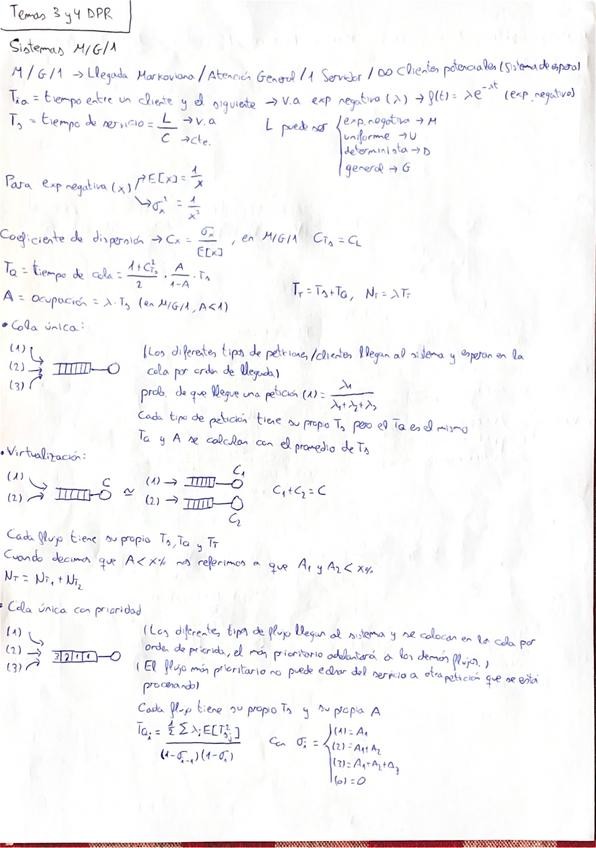 Temas 3 y 4 DPR
Sistemas M/G/1
M/G/1 → Llegada Markoviana / Atención General / 1 Servidor / ∞ Clientes potenciales (Sistema de espera)
T_LLa = tiempo entre un cliente y el siguiente → v.a exp negativa (λ) → f(t) = λe^-λt (exp. negativa)
Ts = tiempo de servicio = L/C → v.a → cte.
L puede ser { exp. negativa → M
uniforme → U
determinista → D
general → G
Para exp negativa (x) → E[x] = 1/x
→ σx² = 1/x²
Coeficiente de dispersión → Cx = σx/E[x], en M/G/1 C_Ts = C_L
TQ = tiempo de cola = (1+C²_Ts)/2 · A/(1-A) · Ts
A = ocupación = λ·Ts (en M/G/1, A<1)
T_T = Ts + TQ, N_T = λT_T
• Cola única:
(1)
(2)
(3)
(Los diferentes tipos de peticiones/clientes llegan al sistema y esperan en la
cola por orden de llegada)
prob. de que llegue una petición (1) = λ1/(λ1+λ2+λ3)
Cada tipo de petición tiene su propio Ts pero el TQ es el mismo
TQ y A se calculan con el promedio de Ts
• Virtualización:
(1) C (1) → C1
(2) ≃ (2) → C2
C1 + C2 = C
Cada flujo tiene su propio Ts, TQ y TT
Cuando decimos que A < x% nos referimos a que A1 y A2 < x%
N_T = N_T1 + N_T2
• Cola única con prioridad
(1)
(2) 3 2 1 1
(3)
(Los diferentes tipos de flujo llegan al sistema y se colocan en la cola por
orden de prioridad, el más prioritario adelantará a los demás flujos.)
(El flujo más prioritario no puede echar del servicio a otra petición que se está
procesando)
Cada flujo tiene su propio Ts y su propia A
TQi = (1/2 Σ λj E[T²sj]) / ((1-σi-1)(1-σi)) con σi = { (1) = A1
(2) = A1+A2
(3) = A1+A2+A3
(0) = 0